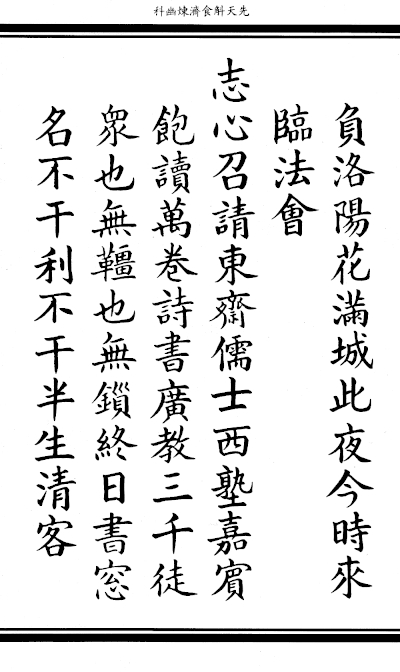 先天斛食濟煉幽科
負洛陽花滿城此夜今時來
臨法會
志心召請東齋儒士西塾嘉賓
飽讀萬卷詩書廣教三千徒
眾也無韁也無鎖終日書窓
名不干利不干半生清客